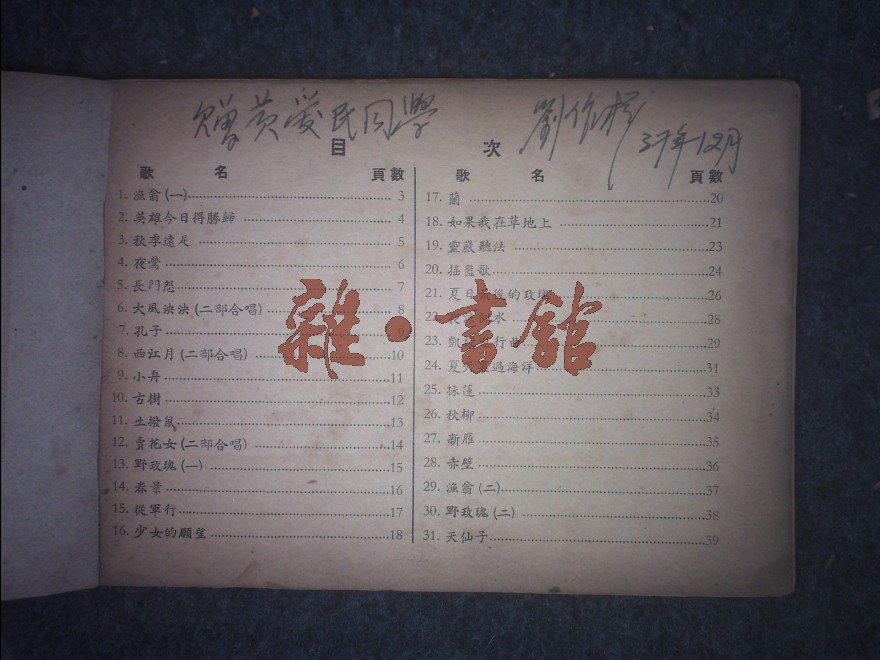 贈黄愛民同學 劉作
37年12月
目 次
歌 名 頁數
1. 漁翁(一) 3
2. 英雄今日得勝歸 4
3. 秋季遠足 5
4. 夜鶯 6
5. 長門怨 7
6. 大風泱泱(二部合唱) 8
7. 孔子 9
8. 西江月(二部合唱) 10
9. 小舟 11
10. 古樹 12
11. 土撥鼠 13
12. 賣花女(二部合唱) 14
13. 野玫瑰(一) 15
14. 春景 16
15. 從軍行 17
16. 少女的願望 18
歌 名 頁數
17. 蘭 20
18. 如果我在草地上 21
19. 靈巖聽法 23
20. 搖籃歌 24
21. 夏日最後的玫瑰 26
22. 水 28
23. 凱 行 29
24. 夏天 過海洋 31
25. 採蓮 33
26. 秋柳 34
27. 新雁 35
28. 赤壁 36
29. 漁翁(二) 37
30. 野玫瑰(二) 38
31. 天仙子 39
雜·書館